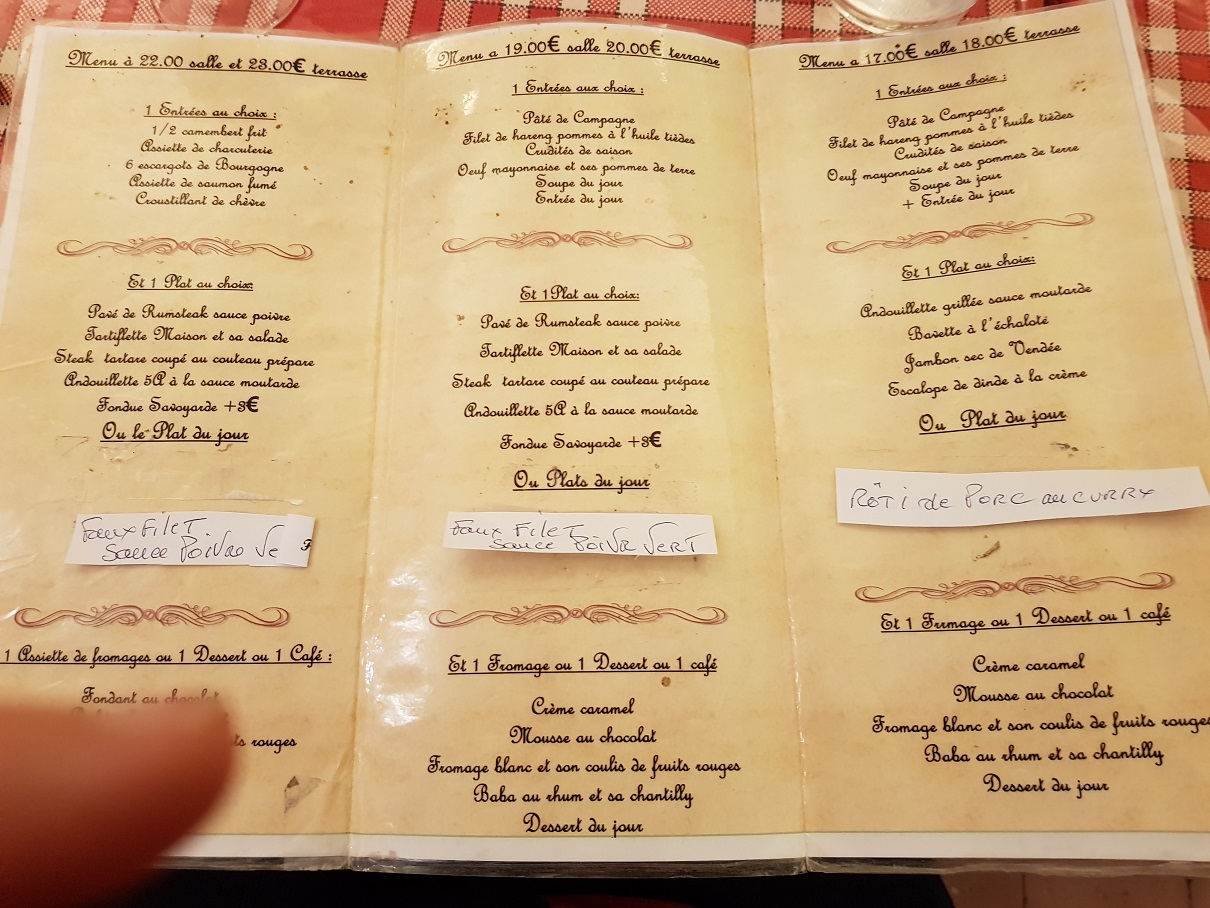 Menu à 22.00 salle et 23.00€ terrasse
1 Entrées au choix :
1/2 camembert frit
Assiette de charcuterie
6 escargots de Bourgogne
Assiette de saumon fumé
Croustillant de chèvre
Et 1 Plat au choix:
Pavé de Rumsteak sauce poivre
Tartiflette Maison et sa salade
Steak tartare coupé au couteau prépare
Andouillette 5A à la sauce moutarde
Fondue Savoyarde +3€
Ou le Plat du jour
Faux Filet
Sauce Poivre Ve
1 Assiette de fromages ou 1 Dessert ou 1 Café :
Fondant au chocolat
rouges
Menu a 19.00€ salle 20.00€ terrasse
1 Entrées aux choix :
Pâté de Campagne
Filet de hareng pommes à l'huile tièdes
Crudités de saison
Oeuf mayonnaise et ses pommes de terre
Soupe du jour
Entrée du jour
Et 1Plat au choix:
Pavé de Rumsteak sauce poivre
Tartiflette Maison et sa salade
Steak tartare coupé au couteau prépare
Andouillette 5A à la sauce moutarde
Fondue Savoyarde +3€
Ou Plats du jour
Faux Filet
Sauce Poivre Vert
Et 1 Fromage ou 1 Dessert ou 1 café
Crème caramel
Mousse au chocolat
Fromage blanc et son coulis de fruits rouges
Baba au rhum et sa chantilly
Dessert du jour
Menu a 17.00€ salle 18.00€ terrasse
1 Entrées aux choix :
Pâté de Campagne
Filet de hareng pommes à l'huile tièdes
Crudités de saison
Oeuf mayonnaise et ses pommes de terre
Soupe du jour
+ Entrée du jour
Et 1 Plat au choix:
Andouillette grillée sauce moutarde
Bavette à l'échalote
Jambon sec de Vendée
Escalope de dinde à la crème
Ou Plat du jour
Rôti de Porc au curry
Et 1 Frrmage ou 1 Dessert ou 1 café
Crème caramel
Mousse au chocolat
Fromage blanc et son coulis de fruits rouges
Baba au rhum et sa chantilly
Dessert du jour